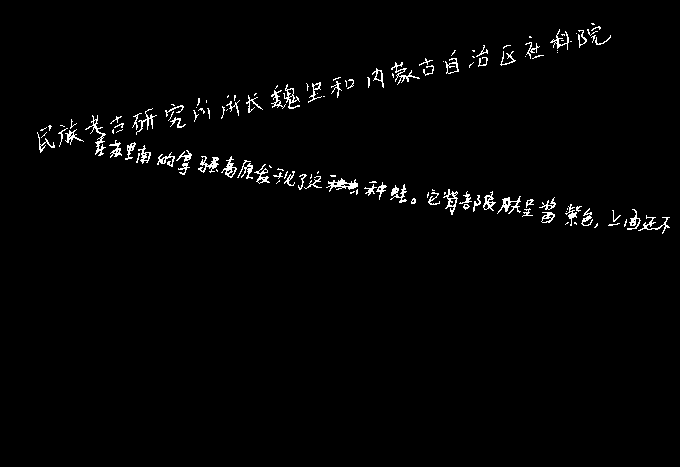 民族考古研究所所长魏坚和内蒙古自治区社科院
在苏里南的拿骚高原发现了这种蛙。它背部皮肤呈酱紫色,上面还不